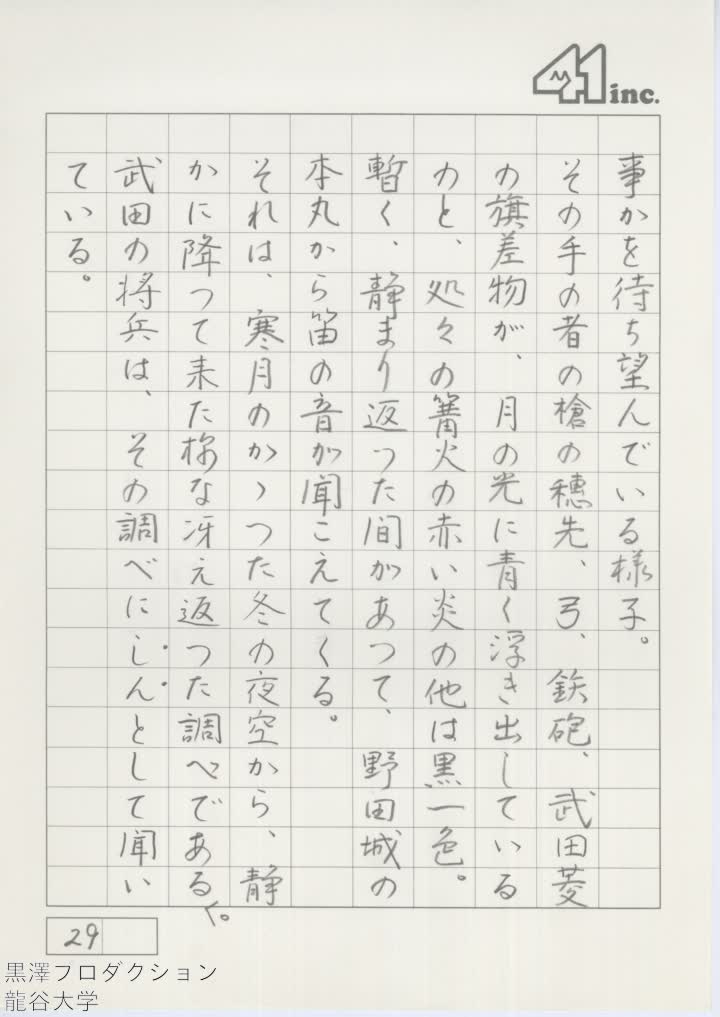 41 inc.
事かを待ち望んでいる様子。
その手の者の槍の穂先、弓、鉄砲、武田菱
の旗差物が、月の光に青く浮き出している
のと、処々の篝火の赤い炎の他は黒一色。
暫く、静まり返つた間があつて、野田城の
本丸から笛の音が聞こえてくる。
それは、寒月のかゝつた冬の夜空から、静
かに降つて来た様な冴え返つた調べである。
武田の将兵は、その調べにしんとして聞い
ている。
29
黒澤フロダクション
龍谷大学